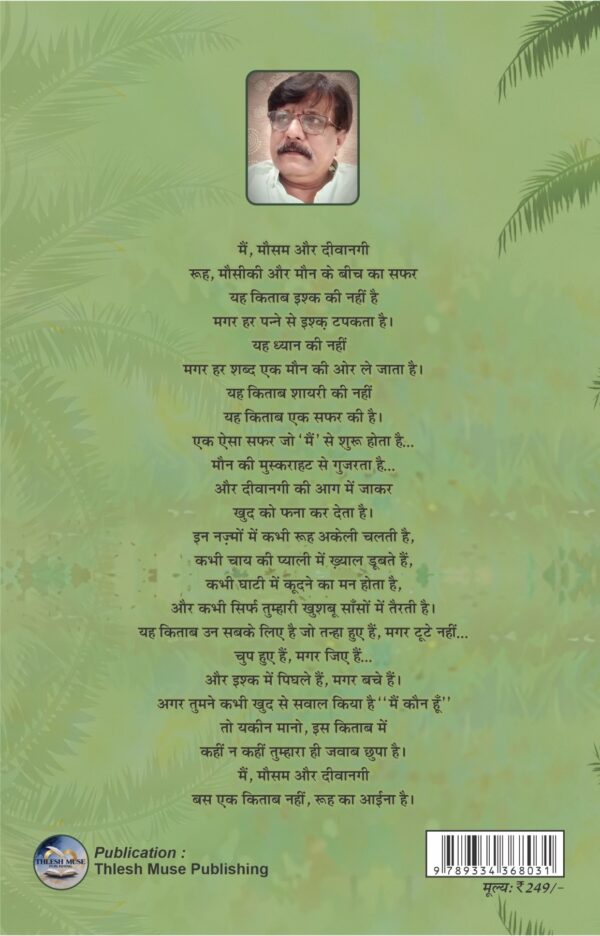 मैं, मौसम और दीवानगी
रूह, मौसीकी और मौन के बीच का सफर
यह किताब इश्क की नहीं है
मगर हर पन्ने से इश्क़ टपकता है।
यह ध्यान की नहीं
मगर हर शब्द एक मौन की ओर ले जाता है।
यह किताब शायरी की नहीं
यह किताब एक सफर की है।
एक ऐसा सफर जो ‘मैं’ से शुरू होता है...
मौन की मुस्कराहट से गुजरता है...
और दीवानगी की आग में जाकर
खुद को फना कर देता है।
इन नज़्मों में कभी रूह अकेली चलती है,
कभी चाय की प्याली में ख़्याल डूबते हैं,
कभी घाटी में कूदने का मन होता है,
और कभी सिर्फ तुम्हारी खुशबू साँसों में तैरती है।
यह किताब उन सबके लिए है जो तन्हा हुए हैं, मगर टूटे नहीं...
चुप हुए हैं, मगर जिए हैं...
और इश्क में पिघले हैं, मगर बचे हैं।
अगर तुमने कभी खुद से सवाल किया है ‘‘मैं कौन हूँ’’
तो यकीन मानो, इस किताब में
कहीं न कहीं तुम्हारा ही जवाब छुपा है।
मैं, मौसम और दीवानगी
बस एक किताब नहीं, रूह का आईना है।
THLESH MUSE
PUBLISHING
Publication :
Thlesh Muse Publishing
9 789334 368031
मूल्य: ₹ 249/-